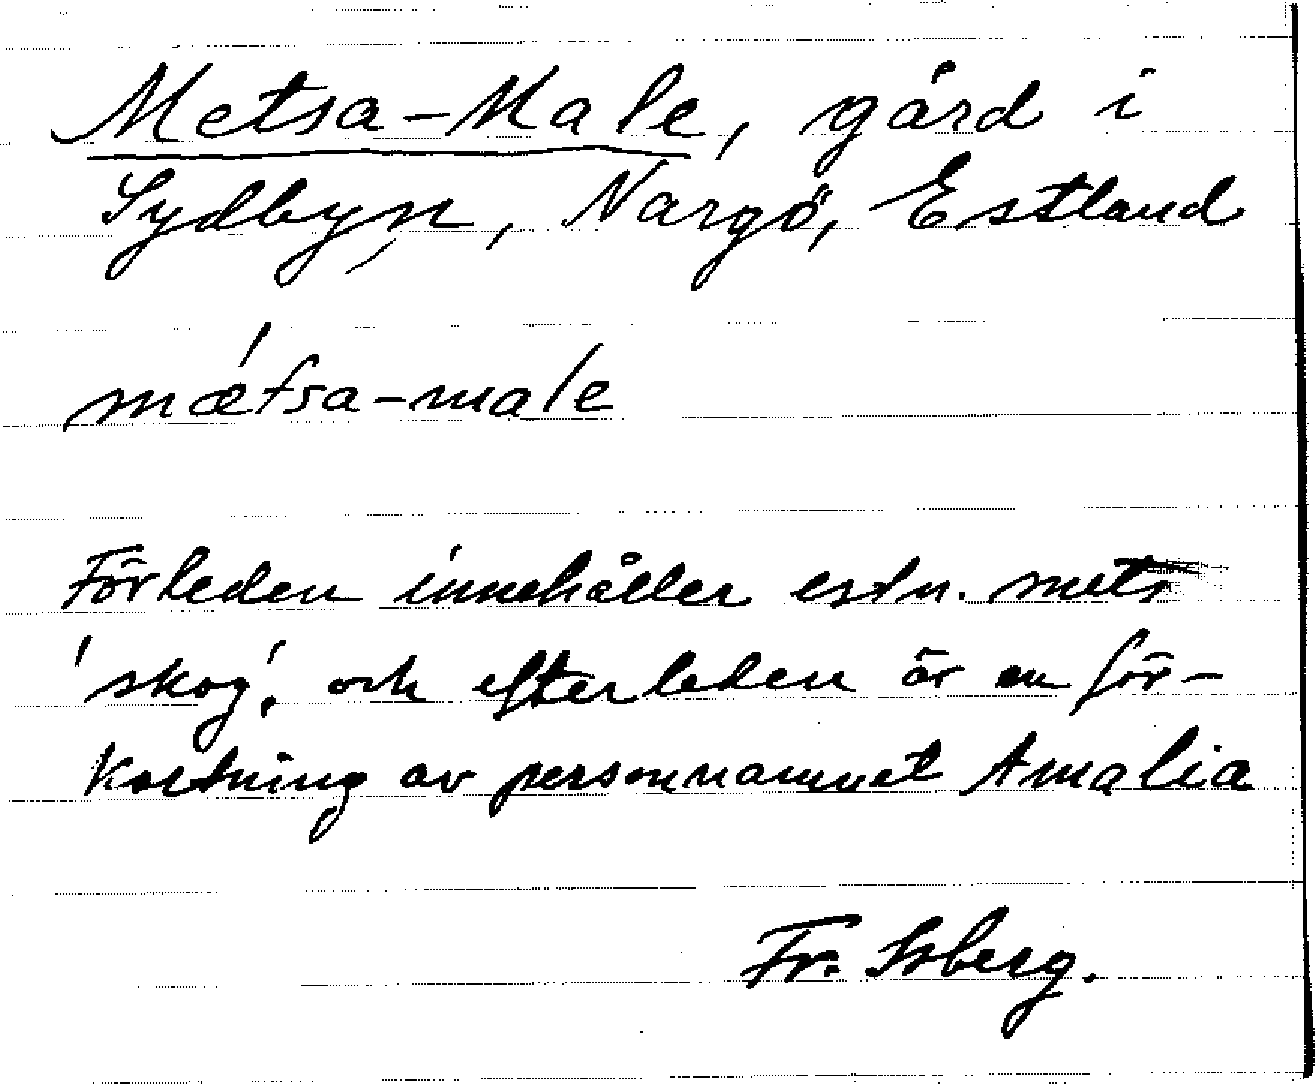 Metsa-Male, gård i
Sydbyn, Nargö, Estland
mǽtsa-male
Förleden innehåller estn. mets
'skog', och efterleden är en för-
kortning av personnamnet Amalia
Fr. Isberg.